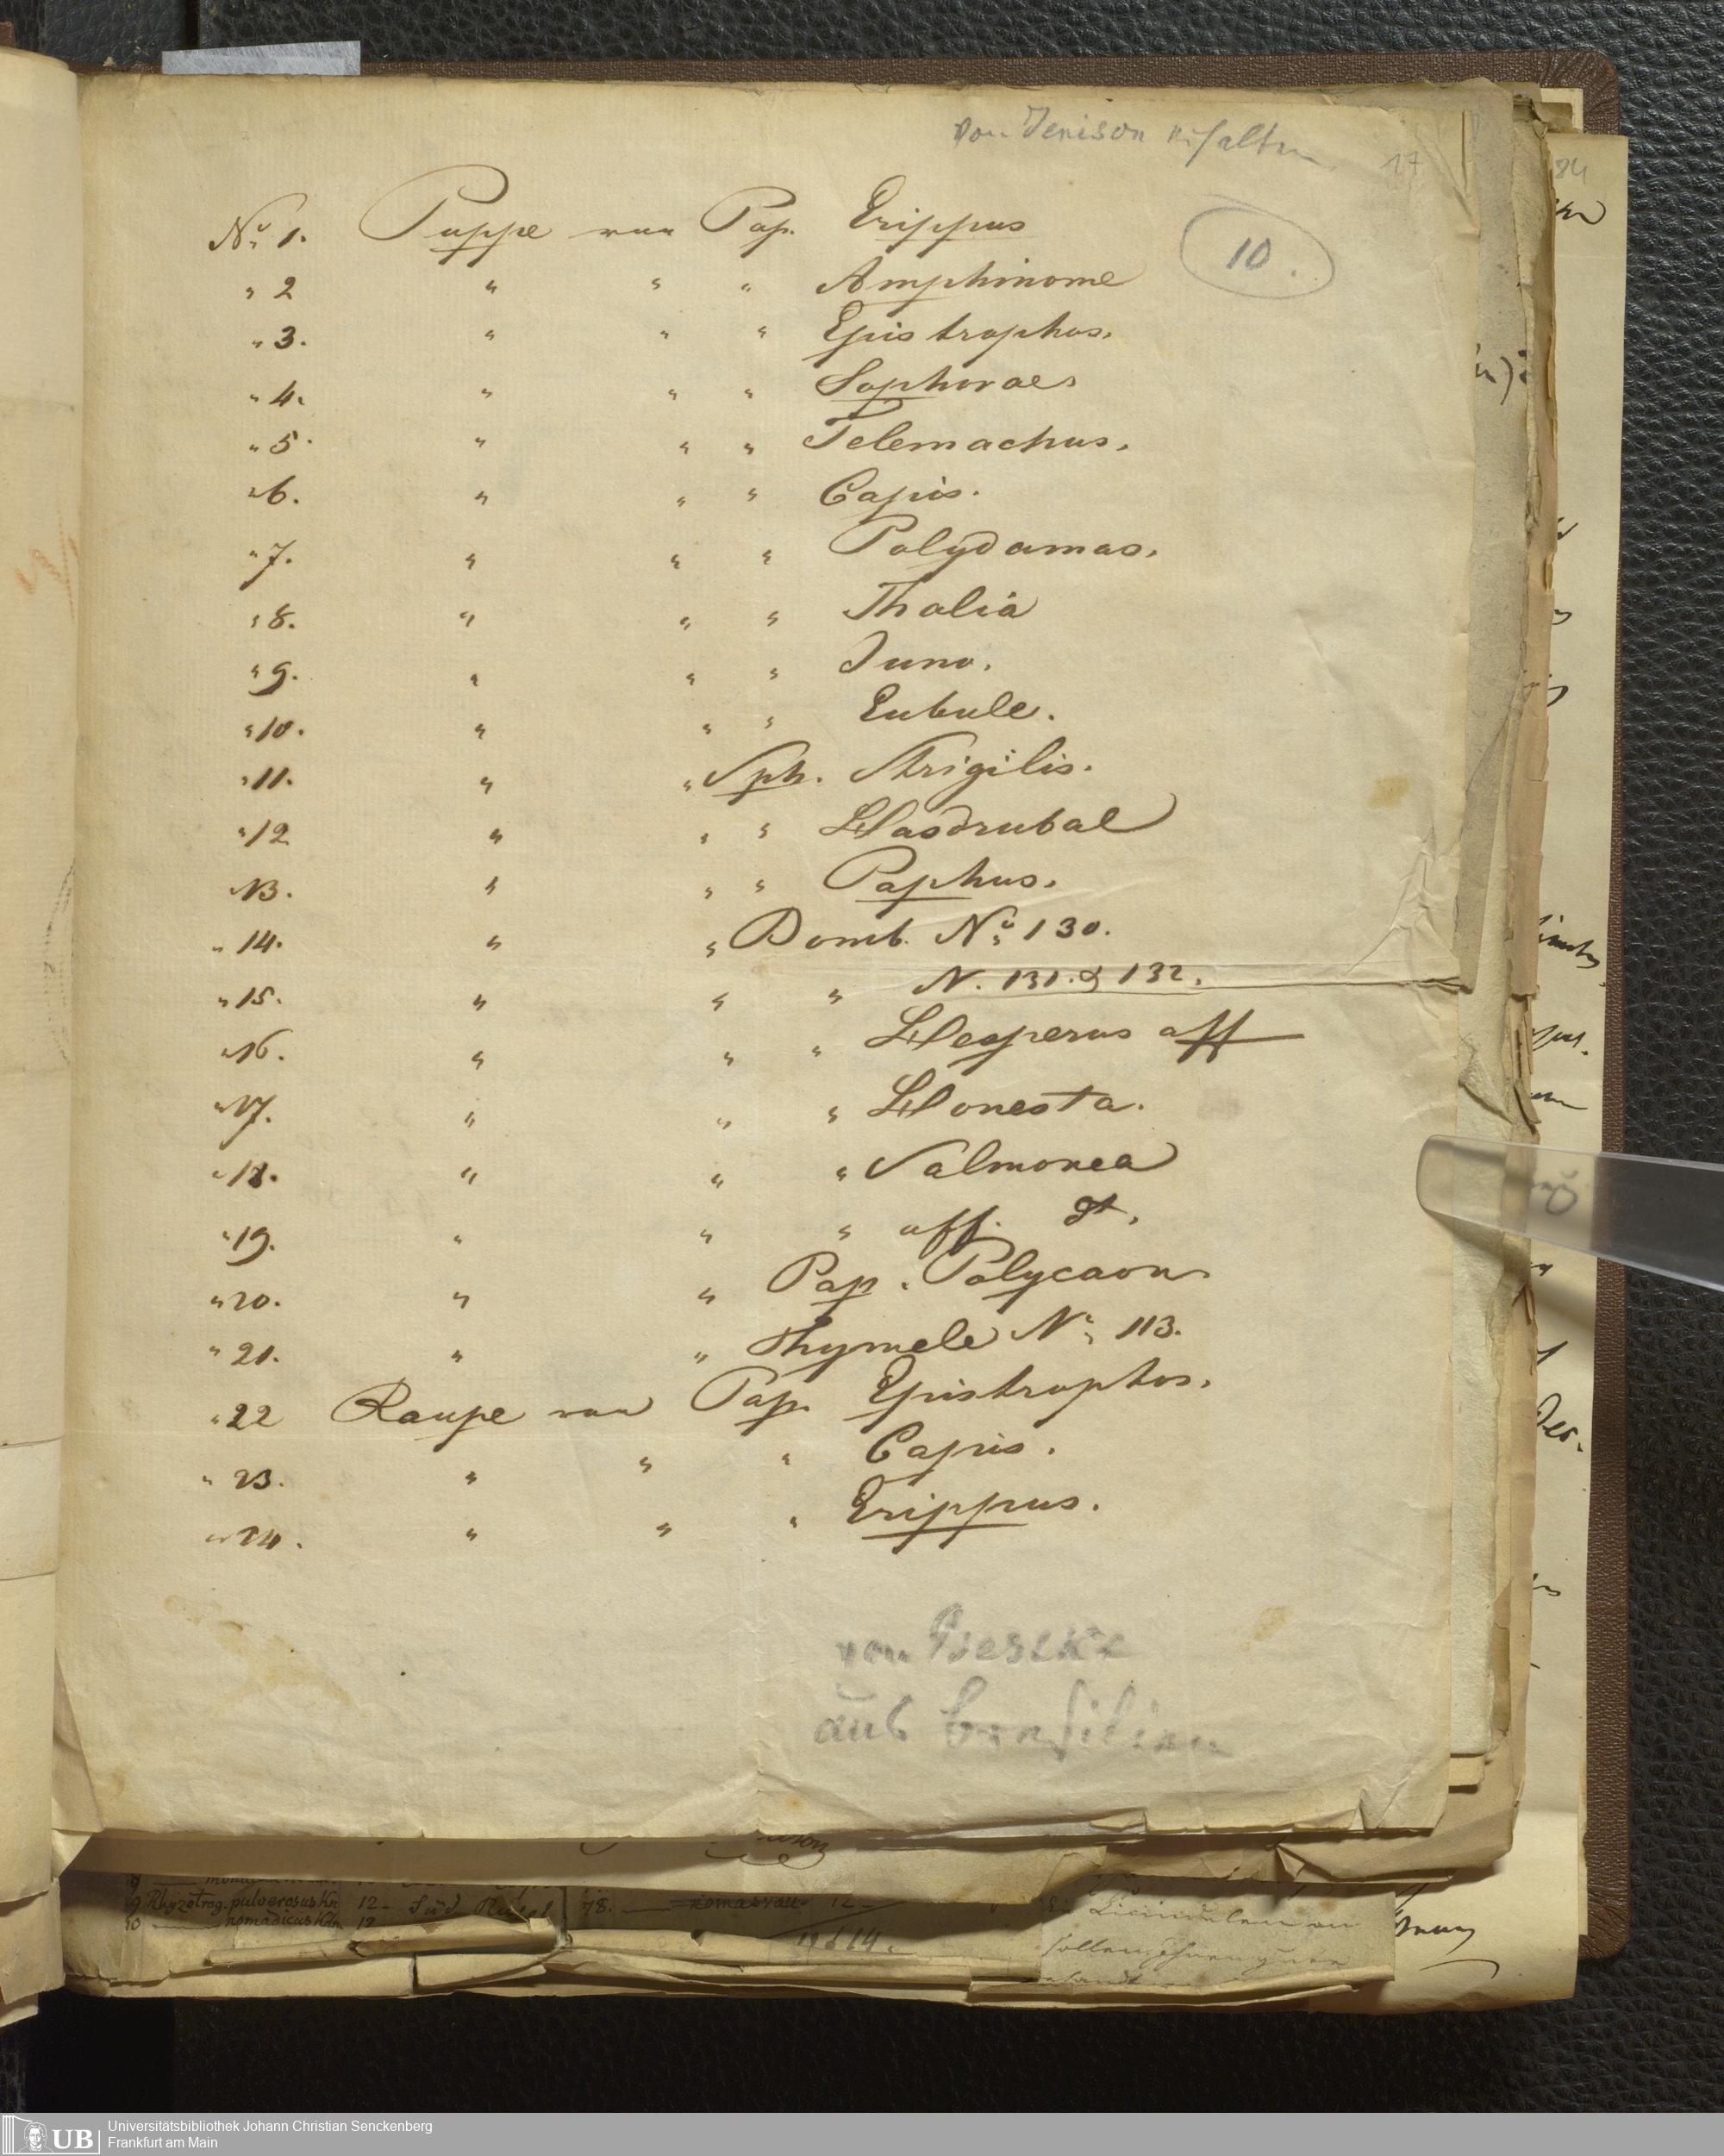 von Jenison erhalten
17
84
10.
No 1. Puppe von Pap. Erippus
" 2 " " " Amphinome
" 3. " " " Epistrophos.
" 4. " " " Sophorae
" 5. " " " Telemachus.
" 6. " " " Capis.
" 7. " " " Polydamas.
" 8. " " " Thalia
" 9. " " " Juno.
" 10. " " " Eubule.
" 11. " " Sph. Strigilis.
" 12 " " " Hasdrubal
" 13. " " " Paphus.
" 14. " " Bomb. No 130.
" 15. " " " N. 131. & 132.
" 16. " " " Hesperus aff
" 17. " " " Honesta.
" 18. " " " Salmonea
" 19. " " " aff. dt.
" 20. " " Pap. Polycaon
" 21. " " Thymele No 113.
" 22 Raupe von Pap. Epistrophos.
" 23. " " " Capis.
" 24. " " " Erippus.
von Beseke
aus Brasilien
9 Rhyzotrog. pulverosus Kn 12 -
10 nomadicus Kln 12
78. 12 -
UB Universitätsbibliothek Johann Christian Senckenberg
Frankfurt am Main